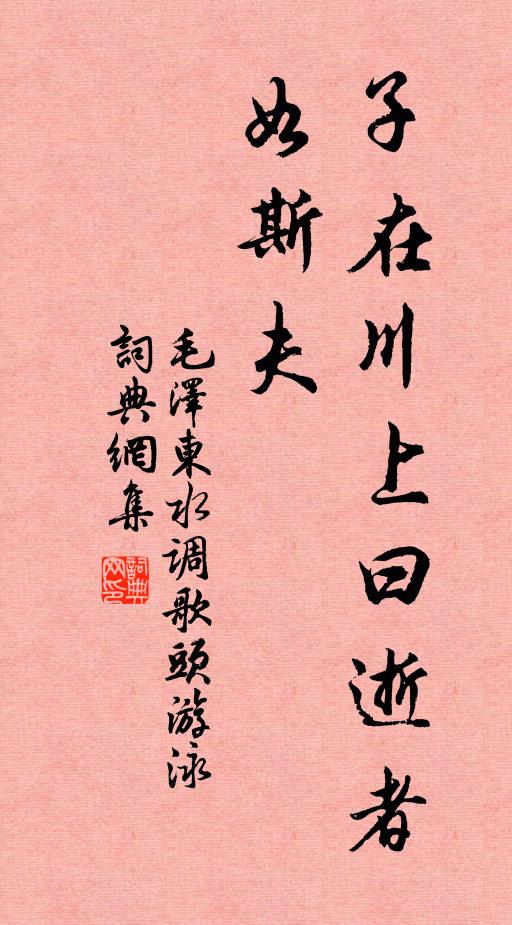 子在川上曰逝者
如斯夫
毛澤東水调歌頭游泳
詞典網集
詞典网印